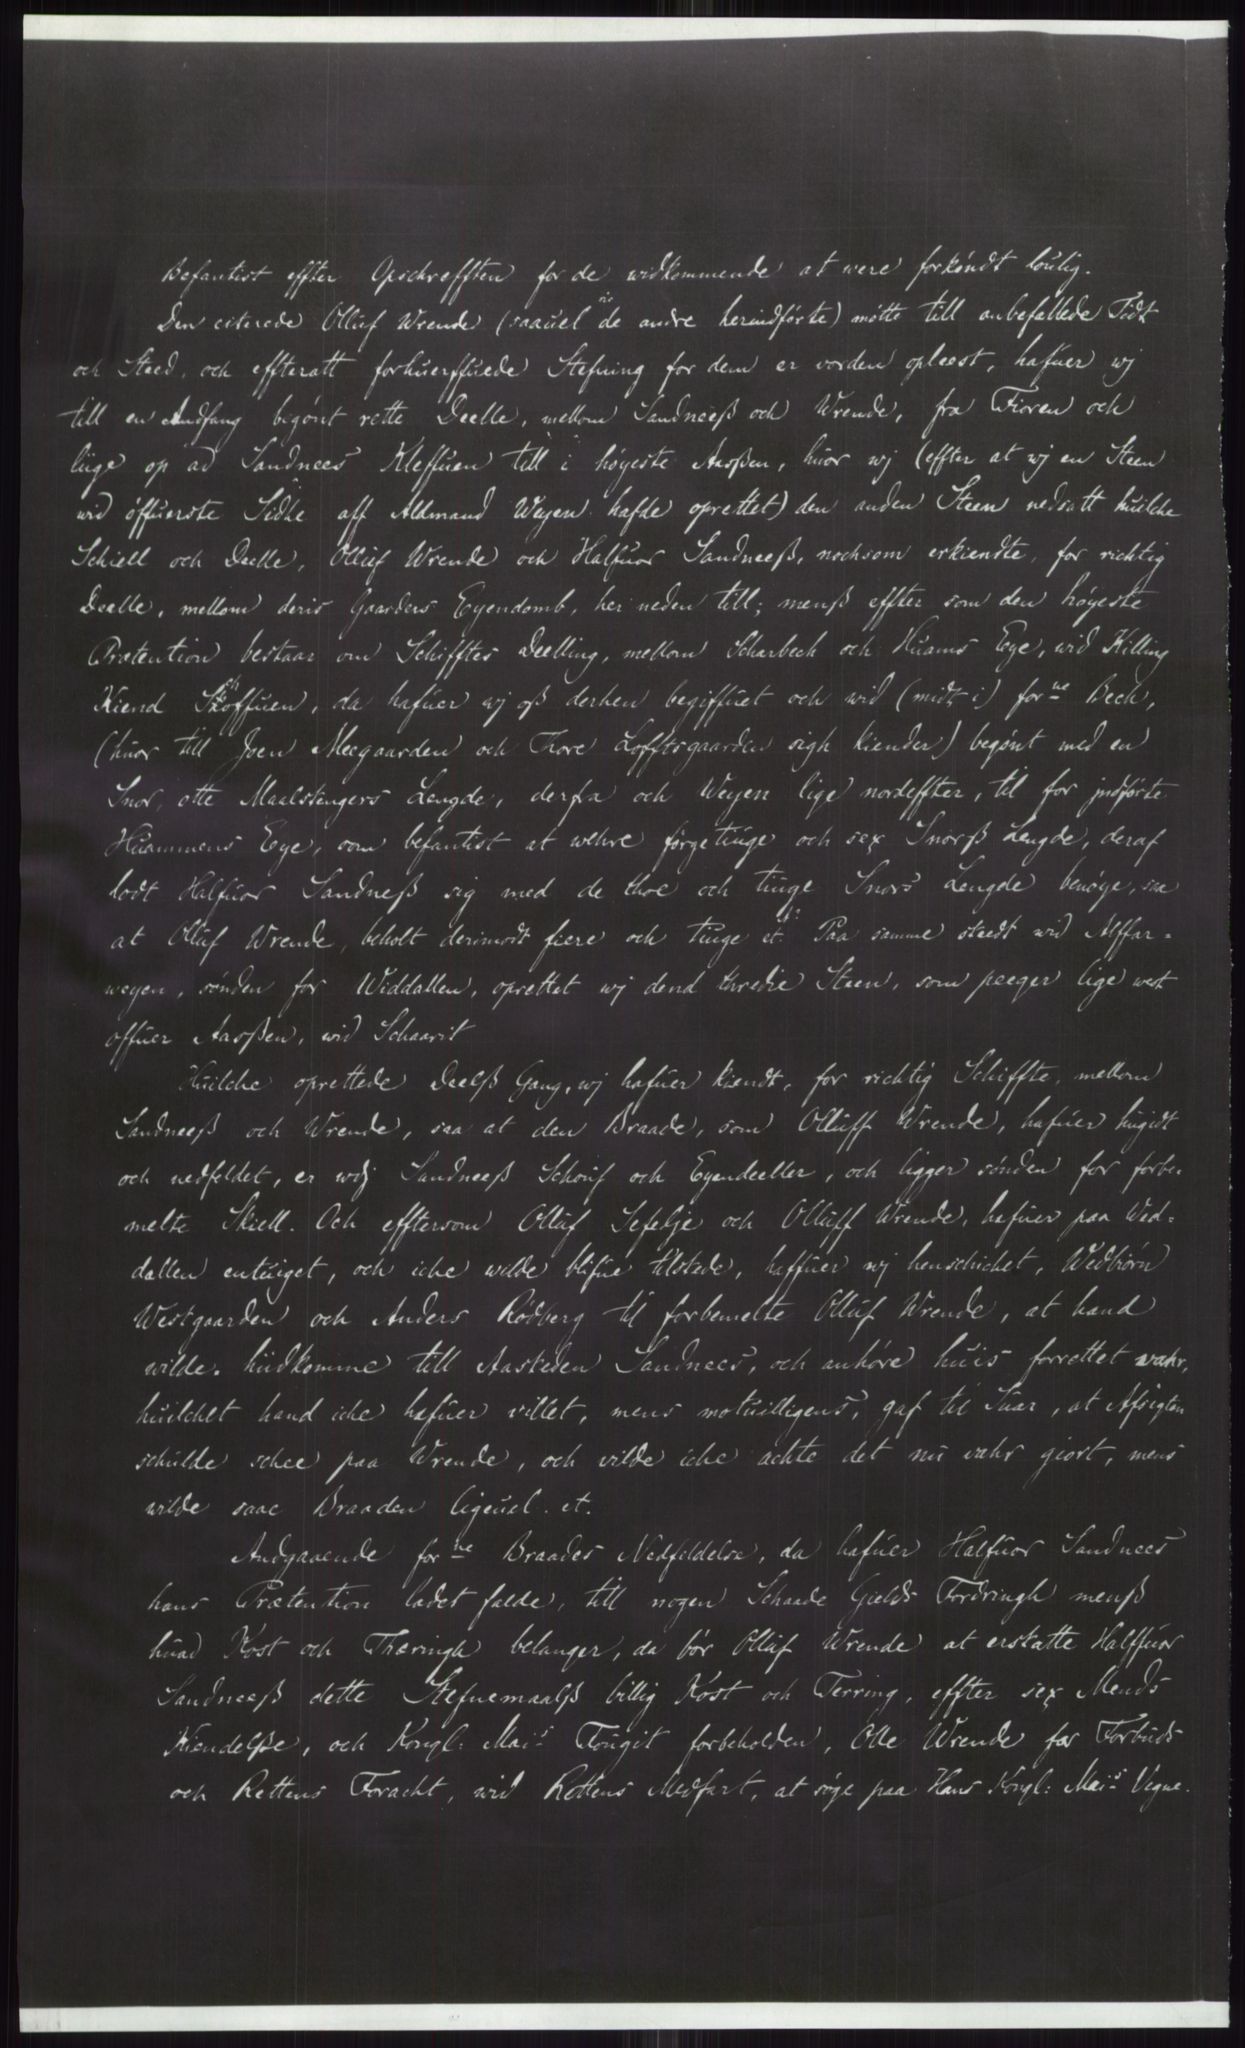 Befantist effter Opschrefften for de widkommende at were forkøndt loulig.
Den citerede Olluf Wrende (saauel de andre herindførte) møtte till anbefallede Tidt
och Sted, och effteratt forhuerffuede Stefning for dem er vorden opleest, hafuer wj
till en Andfang begønt rette Deelle, mellom Sandneeß och Wrende, fra Fioren och
liige op ad Sandnees Kleffuen till i høyeste Aasßen, huor wj (effter at wj en Steen
wid øffuerste Sidhe aff Aldmand Weyen hafde oprettet) den anden Steen nedsatt huilche
Schiell och Deelle, Olluf Wrende och Halfuor Sandneeß, nochsom erkiendte, for richtig
Deelle, mellom deris Gaarders Eyendomb, her neden till; menß effter som den høyeste
Prætention bestaar om Schifftes Deelling, mellom Scharbech och Huams Eye, wid Killing
Kiend Skøffuen, da hafuer wj oß derhen begiffuet och wid (midt i) for<sup>ne</sup> Bech,
(huor till Joen Meegaarden och Tore Lofftsgaarden sigh kiender) begønt med en
Snor, otte Maalstengers Lengde, derfra och Weyen lige nordeffter, til for jndførte
Huammens Eye, som befantist at wehre førgetiuge och sex Snorß Lengde, deraf
lodt Halfuor Sandneß sig med de thoe och tiuge Snors Lengde benøye, saa
at Olluf Wrende, beholt derimodt fiere och tiuge et<sup>c</sup>. Paa samme steedt wid Alffar-
weyen, sønden for Widdallen, oprettet wj dend thredie Steen, som peeger lige west
offuer Aasßen, wid Schaarit
Huilche oprettede Deelß Gang, wj hafuer kiendt, for richtig Schiffte, mellom
Sandneeß och Wrende, saa at den Braade, som Olluff Wrende, hafuer hugidt
och nedfeldet, er wdj Sandneeß Schouf och Eyendeeller, och ligger sønden for forbe-
melte Skiell. Och efftersom Olluf Sefelje och Olluff Wrende, hafuer paa Wed-
dallen entuiget, och iche wilde blifue tilstede, haffuer wj henschichet, Wedbiørn
Westgaarden och Anders Rødberg til forbemelte Olluf Wrende, at hand
wilde hiidkomme till Aasteden Sandnees, och anhøre huis forrettet wahr,
huilchet hand iche hafuer villet, mens motuilligens, gaf til Suar, at Afsigten
schulde schee paa Wrende, och vilde iche achte det nu wahr giort, mens
wilde saae Braaden ligeuel. et.
Andgaaende for<sup>ne</sup> Braades Nedfeldelse, da hafuer Halfuor Sandnees
hans Prætention ladet falde, till nogen Schaade Gields Fordringh menß
huad Kost och Thæringh belanger, da bør Olluf Wrende at erstatte Halffuor
Sandneeß dette Stefnemaalß billig Kost och Terring, effter sex Mends
Kiendelße, och Kongl: Mai<sup>s</sup> Fougit forbeholden, Olle Wrende for Forbuds
och Rettens Foracht, wid Rettens Medfart, at søge paa Hans Kongl: Mai<sup>s</sup> Vegne.